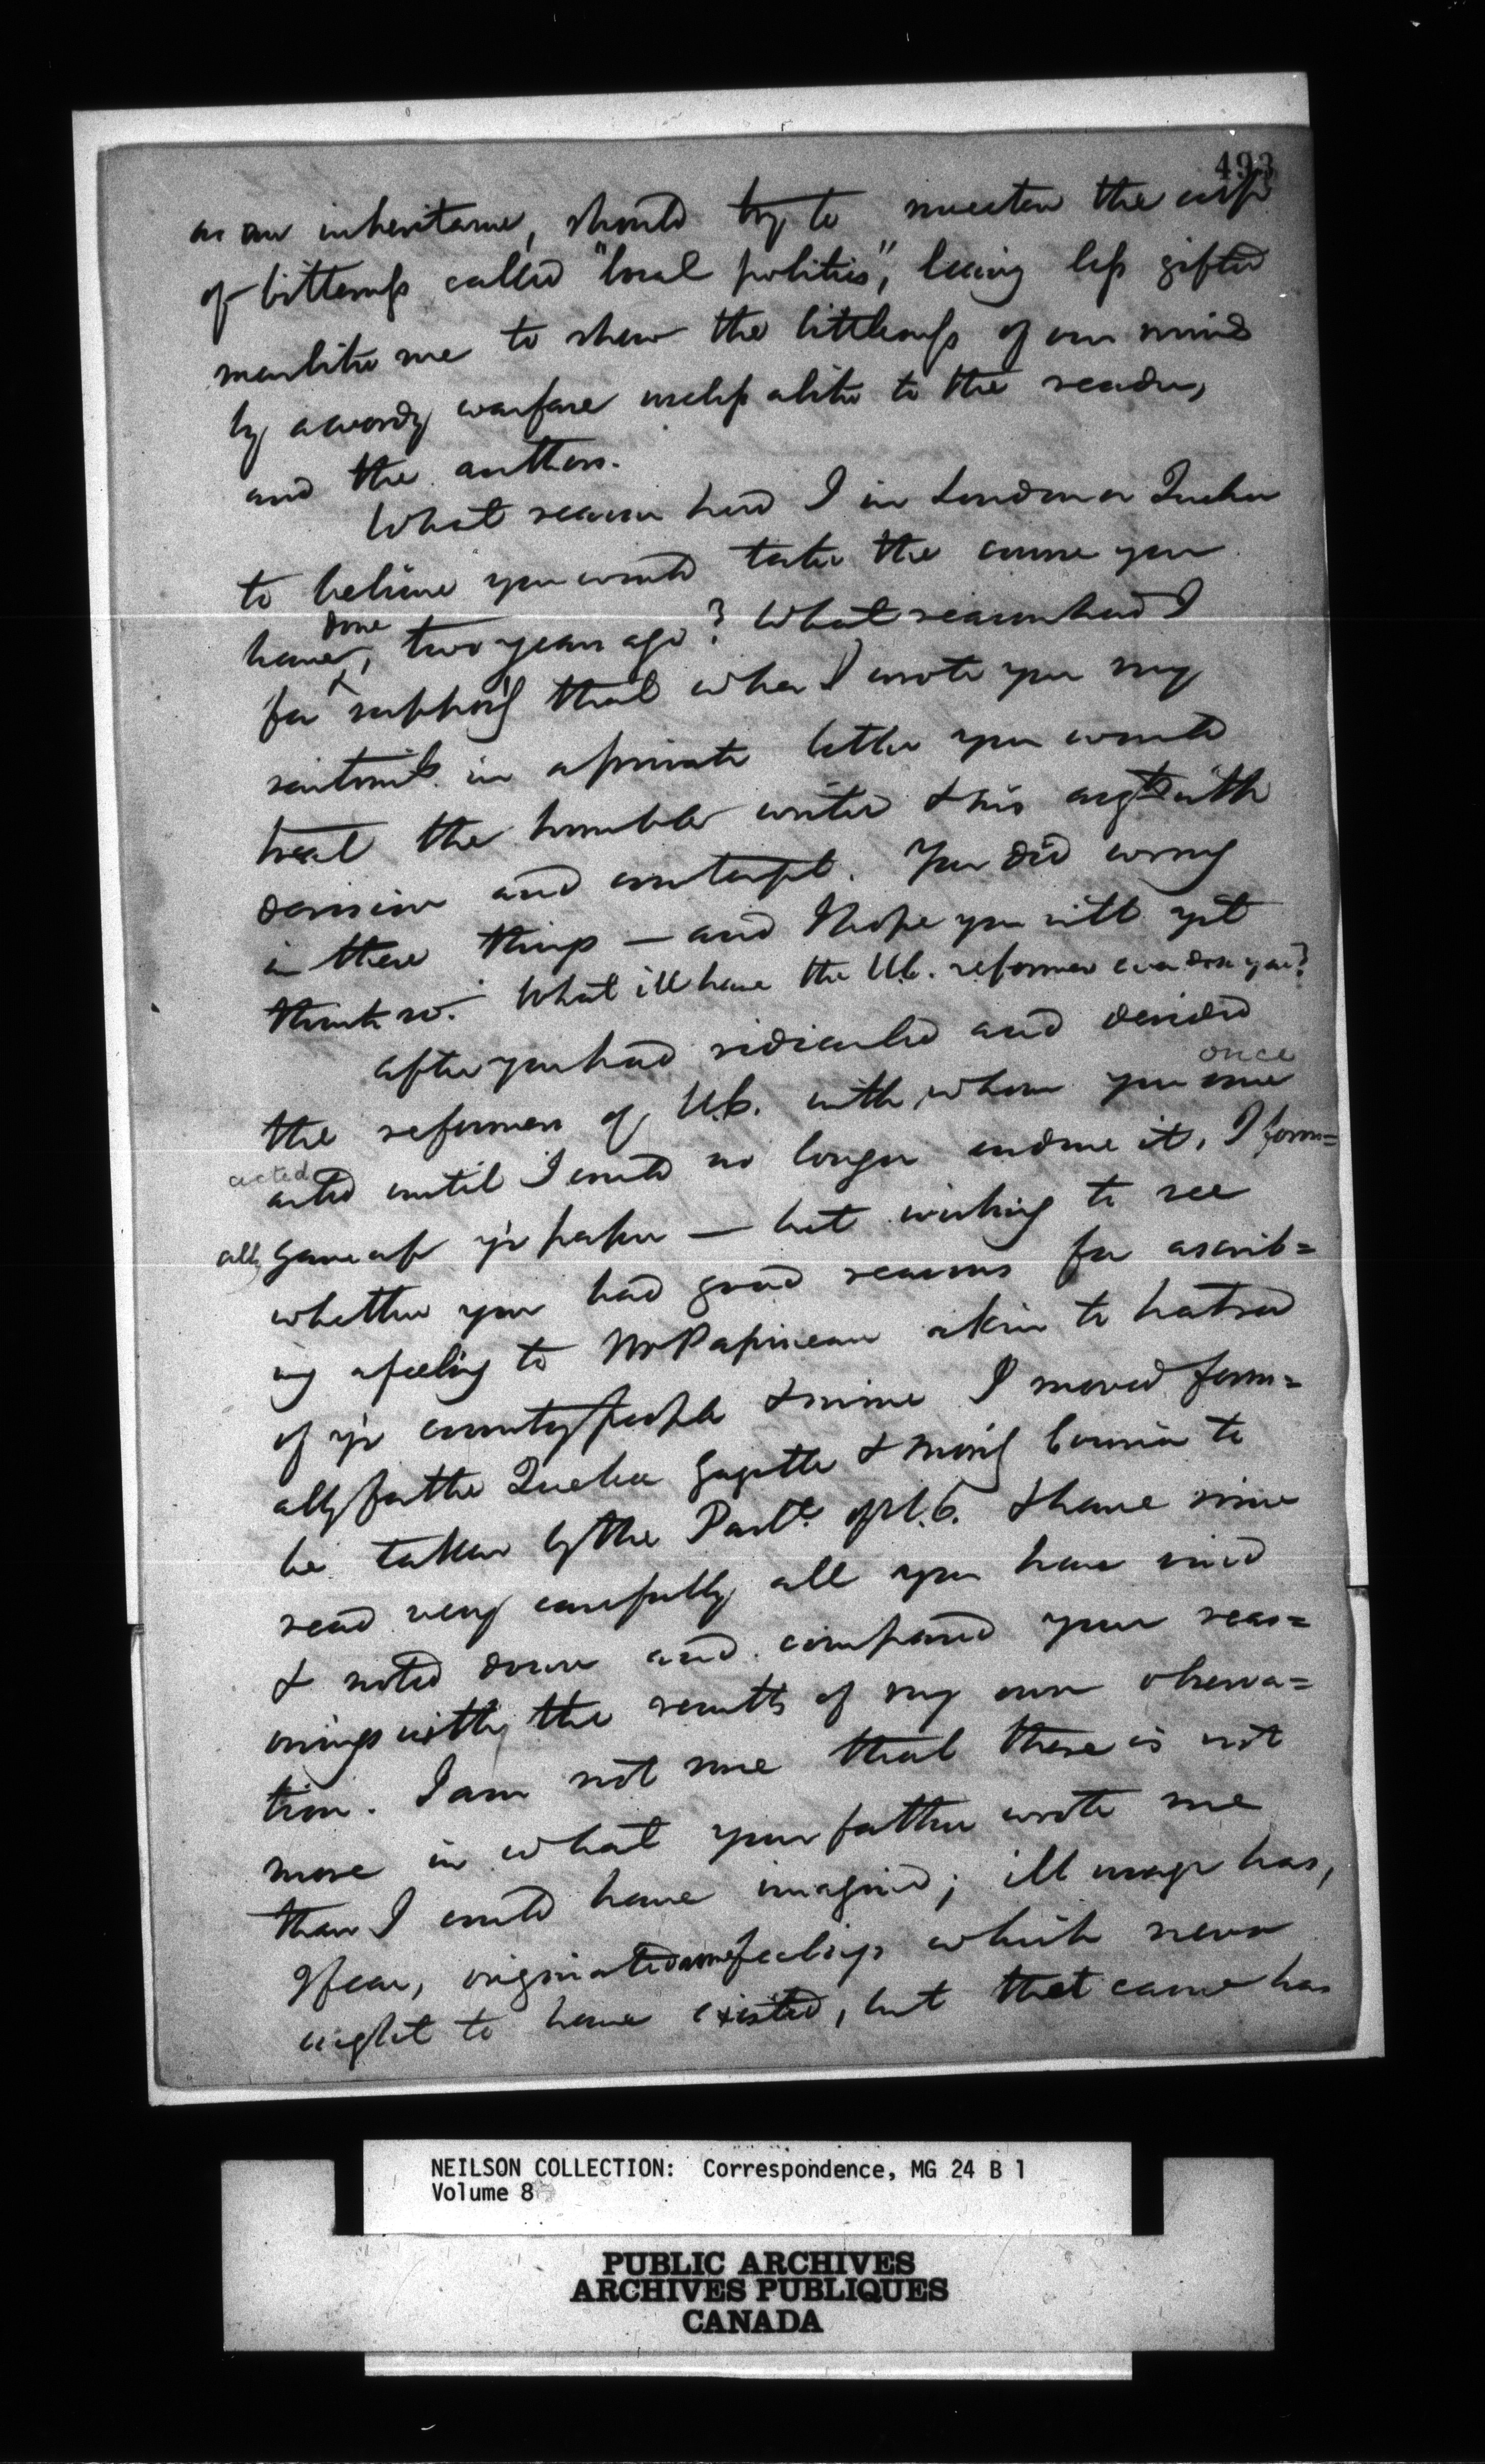 493
as an inheritance, should try to sweeten the cup
of bitterness called "local politics", leaving less gifted
men like me to show the littleness of our minds
by a wordy warfare useless alike to the reader,
and the authors.
What reason had I in London or Quebec
to believe you would take the course you
have done, two years ago? What reason had I
for suppos'g that when I wrote you my
sentimts. in a private letter you would
treat the humble writer & his argts with
derision and contempt. You did wrong
in these things — and I hope you will yet
think so. What ill have the U.C. reformers ever done you?
After you had ridiculed and derided
the reformers of U.C. with whom you once once
acted acted until I could no longer endure it, I form=
ally gave up yr paper — but wishing to see
whether you had good reasons for ascrib=
ing a feeling to Mr Papineau akin to hatred
of yr countrypeople & mine I moved form=
ally for the Quebec Gazette & Morng Courier to
be taken by the Parlt. of U.C. & have since
read very carefully all you have said
& noted down and compared your reas=
onings with the results of my own observa=
tion. I am not sure that there is not
more in what your father wrote me
than I could have imagined; ill usage has,
I fear, originated some feelings which never
ought to have existed, but that cause has
NEILSON COLLECTION: Correspondence, MG 24 B 1
Volume 8
PUBLIC ARCHIVES
ARCHIVES PUBLIQUES
CANADA